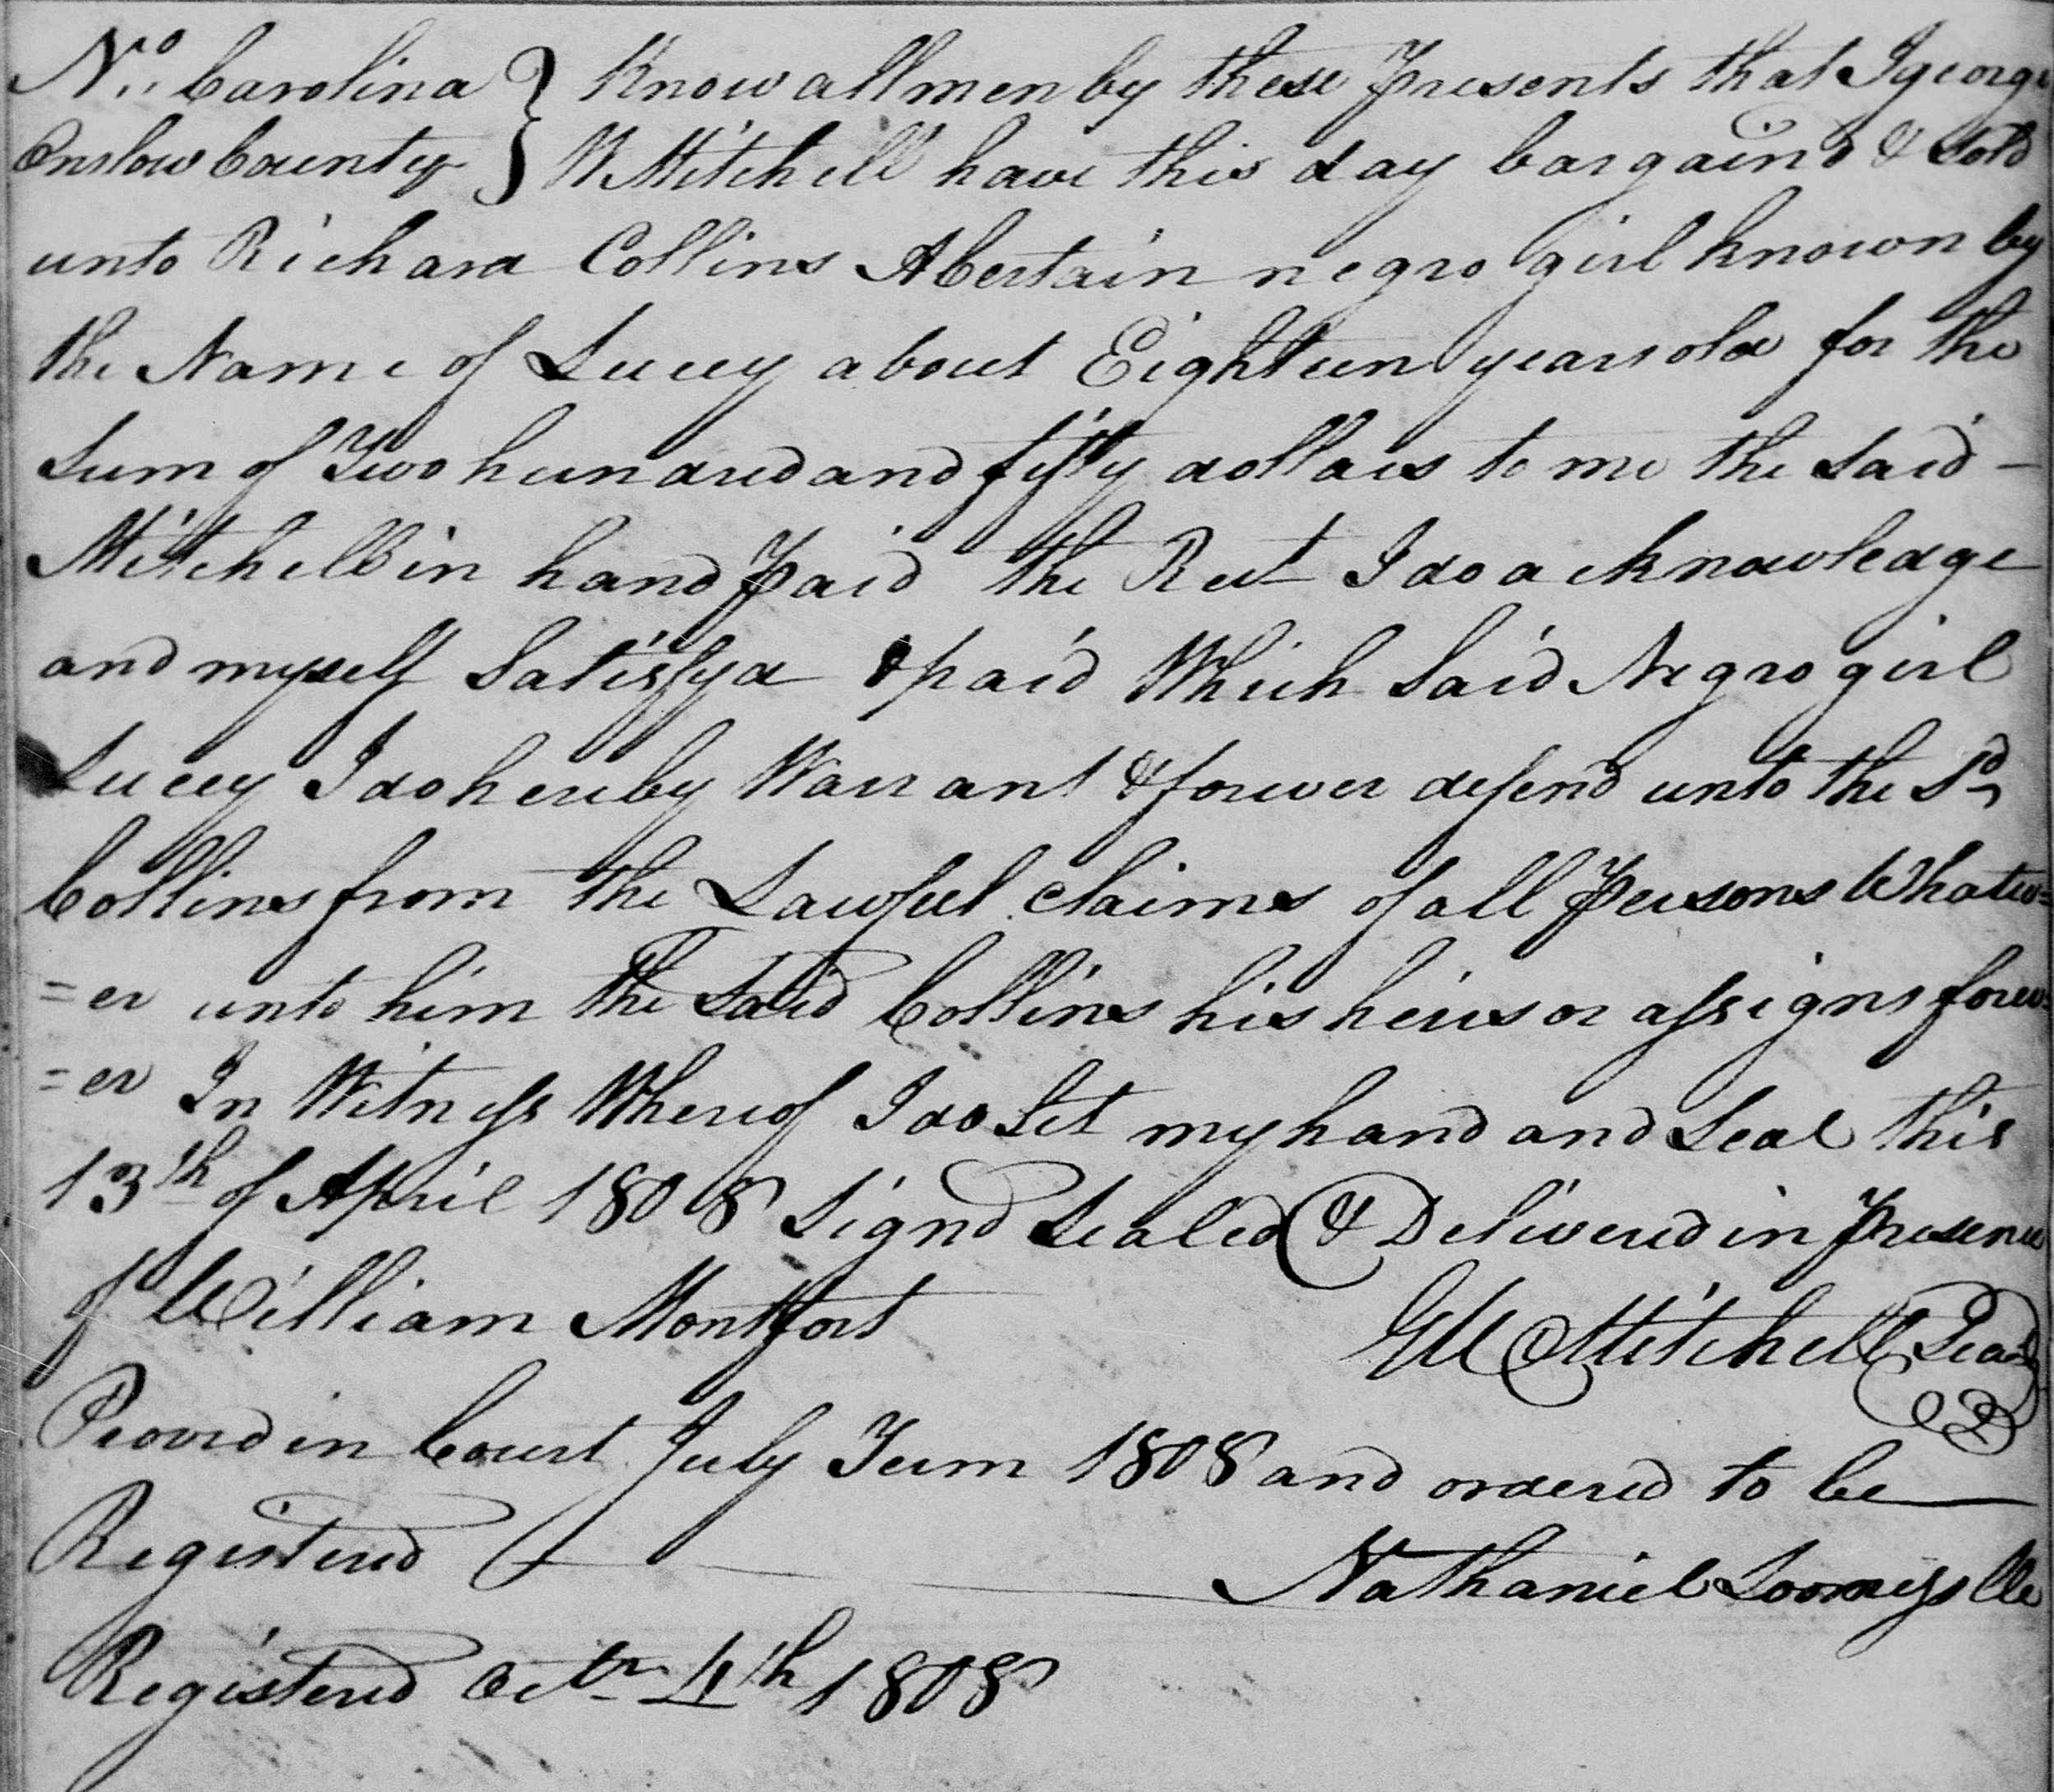 No. Carolina } Know all men by these Presents that I george
Onslow County } W Mitchell have this day bargaind & Sold
unto Richard Collins A Certain negro girl known by
the Name of Lucey about Eighteen years old for the
Sum of Two hundred and fifty dollars to me the Said –
Mitchell in hand Paid the Rect I do acknowledge
and myself Satisfyd & paid Which Said Negro girl
Lucey I do hereby Warrant & forever defend unto the Sd
Collins from the Lawful claims of all Persons Whatev=
=er unto him the Said Collins his heirs or assigns forev=
=er In Witness Whereof I do Set my hand and Seal this
13th of April 1808 Signd Sealed & Delivered in Presence
of William Montfort GW Mitchell Seal
Provd in Court July Term 1808 and ordered to be
Registered Nathaniel Loomiss Clk
Registered Octr 4th 1808